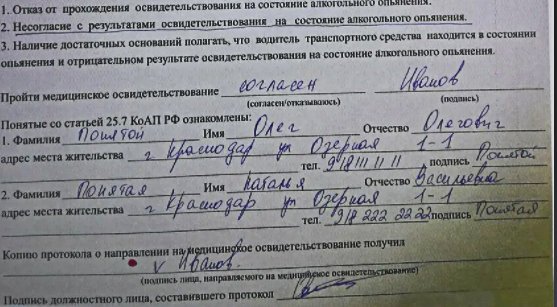 1. Отказ от прохождения освидетельствования на состояние алкогольного опьянения.
2. Несогласие с результатами освидетельствования на состояние алкогольного опьянения.
3. Наличие достаточных оснований полагать, что водитель транспортного средства находится в состоянии
опьянения и отрицательном результате освидетельствования на состояние алкогольного опьянения.
Пройти медицинское освидетельствование согласен Иванов
(согласен/отказываюсь) (подпись)
Понятые со статьей 25.7 КоАП РФ ознакомлены:
1. Фамилия Понятой Имя Олег Отчество Олегович
адрес места жительства г Краснодар ул Озерная 1-1
тел. 918 111 11 11 подпись Понятой
2. Фамилия Понятая Имя Наталья Отчество Васильевна
адрес места жительства г Краснодар ул Озерная 1-1
тел. 918 222 22 22 подпись Понятая
Копию протокола о направлении на медицинское освидетельствование получил
v Иванов
(подпись лица, направляемого на медицинское освидетельствование)
Подпись должностного лица, составившего протокол